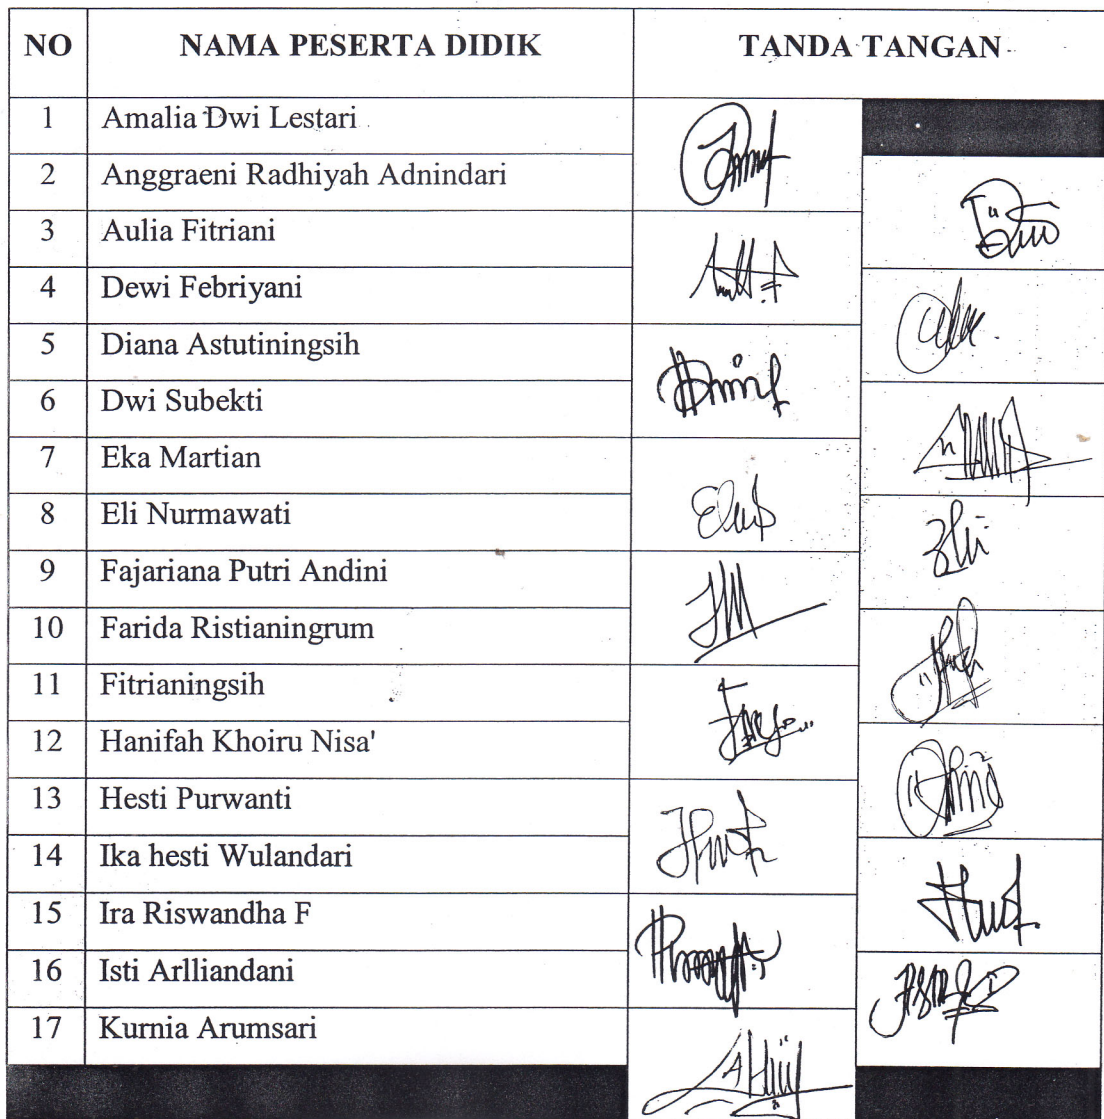 NO NAMA PESERTA DIDIK TANDA TANGAN
1 Amalia Dwi Lestari
2 Anggraeni Radhiyah Adnindari
3 Aulia Fitriani
4 Dewi Febriyani
5 Diana Astutiningsih
6 Dwi Subekti
7 Eka Martian
8 Eli Nurmawati
9 Fajariana Putri Andini
10 Farida Ristianingrum
11 Fitrianingsih
12 Hanifah Khoiru Nisa'
13 Hesti Purwanti
14 Ika hesti Wulandari
15 Ira Riswandha F
16 Isti Arlliandani
17 Kurnia Arumsari